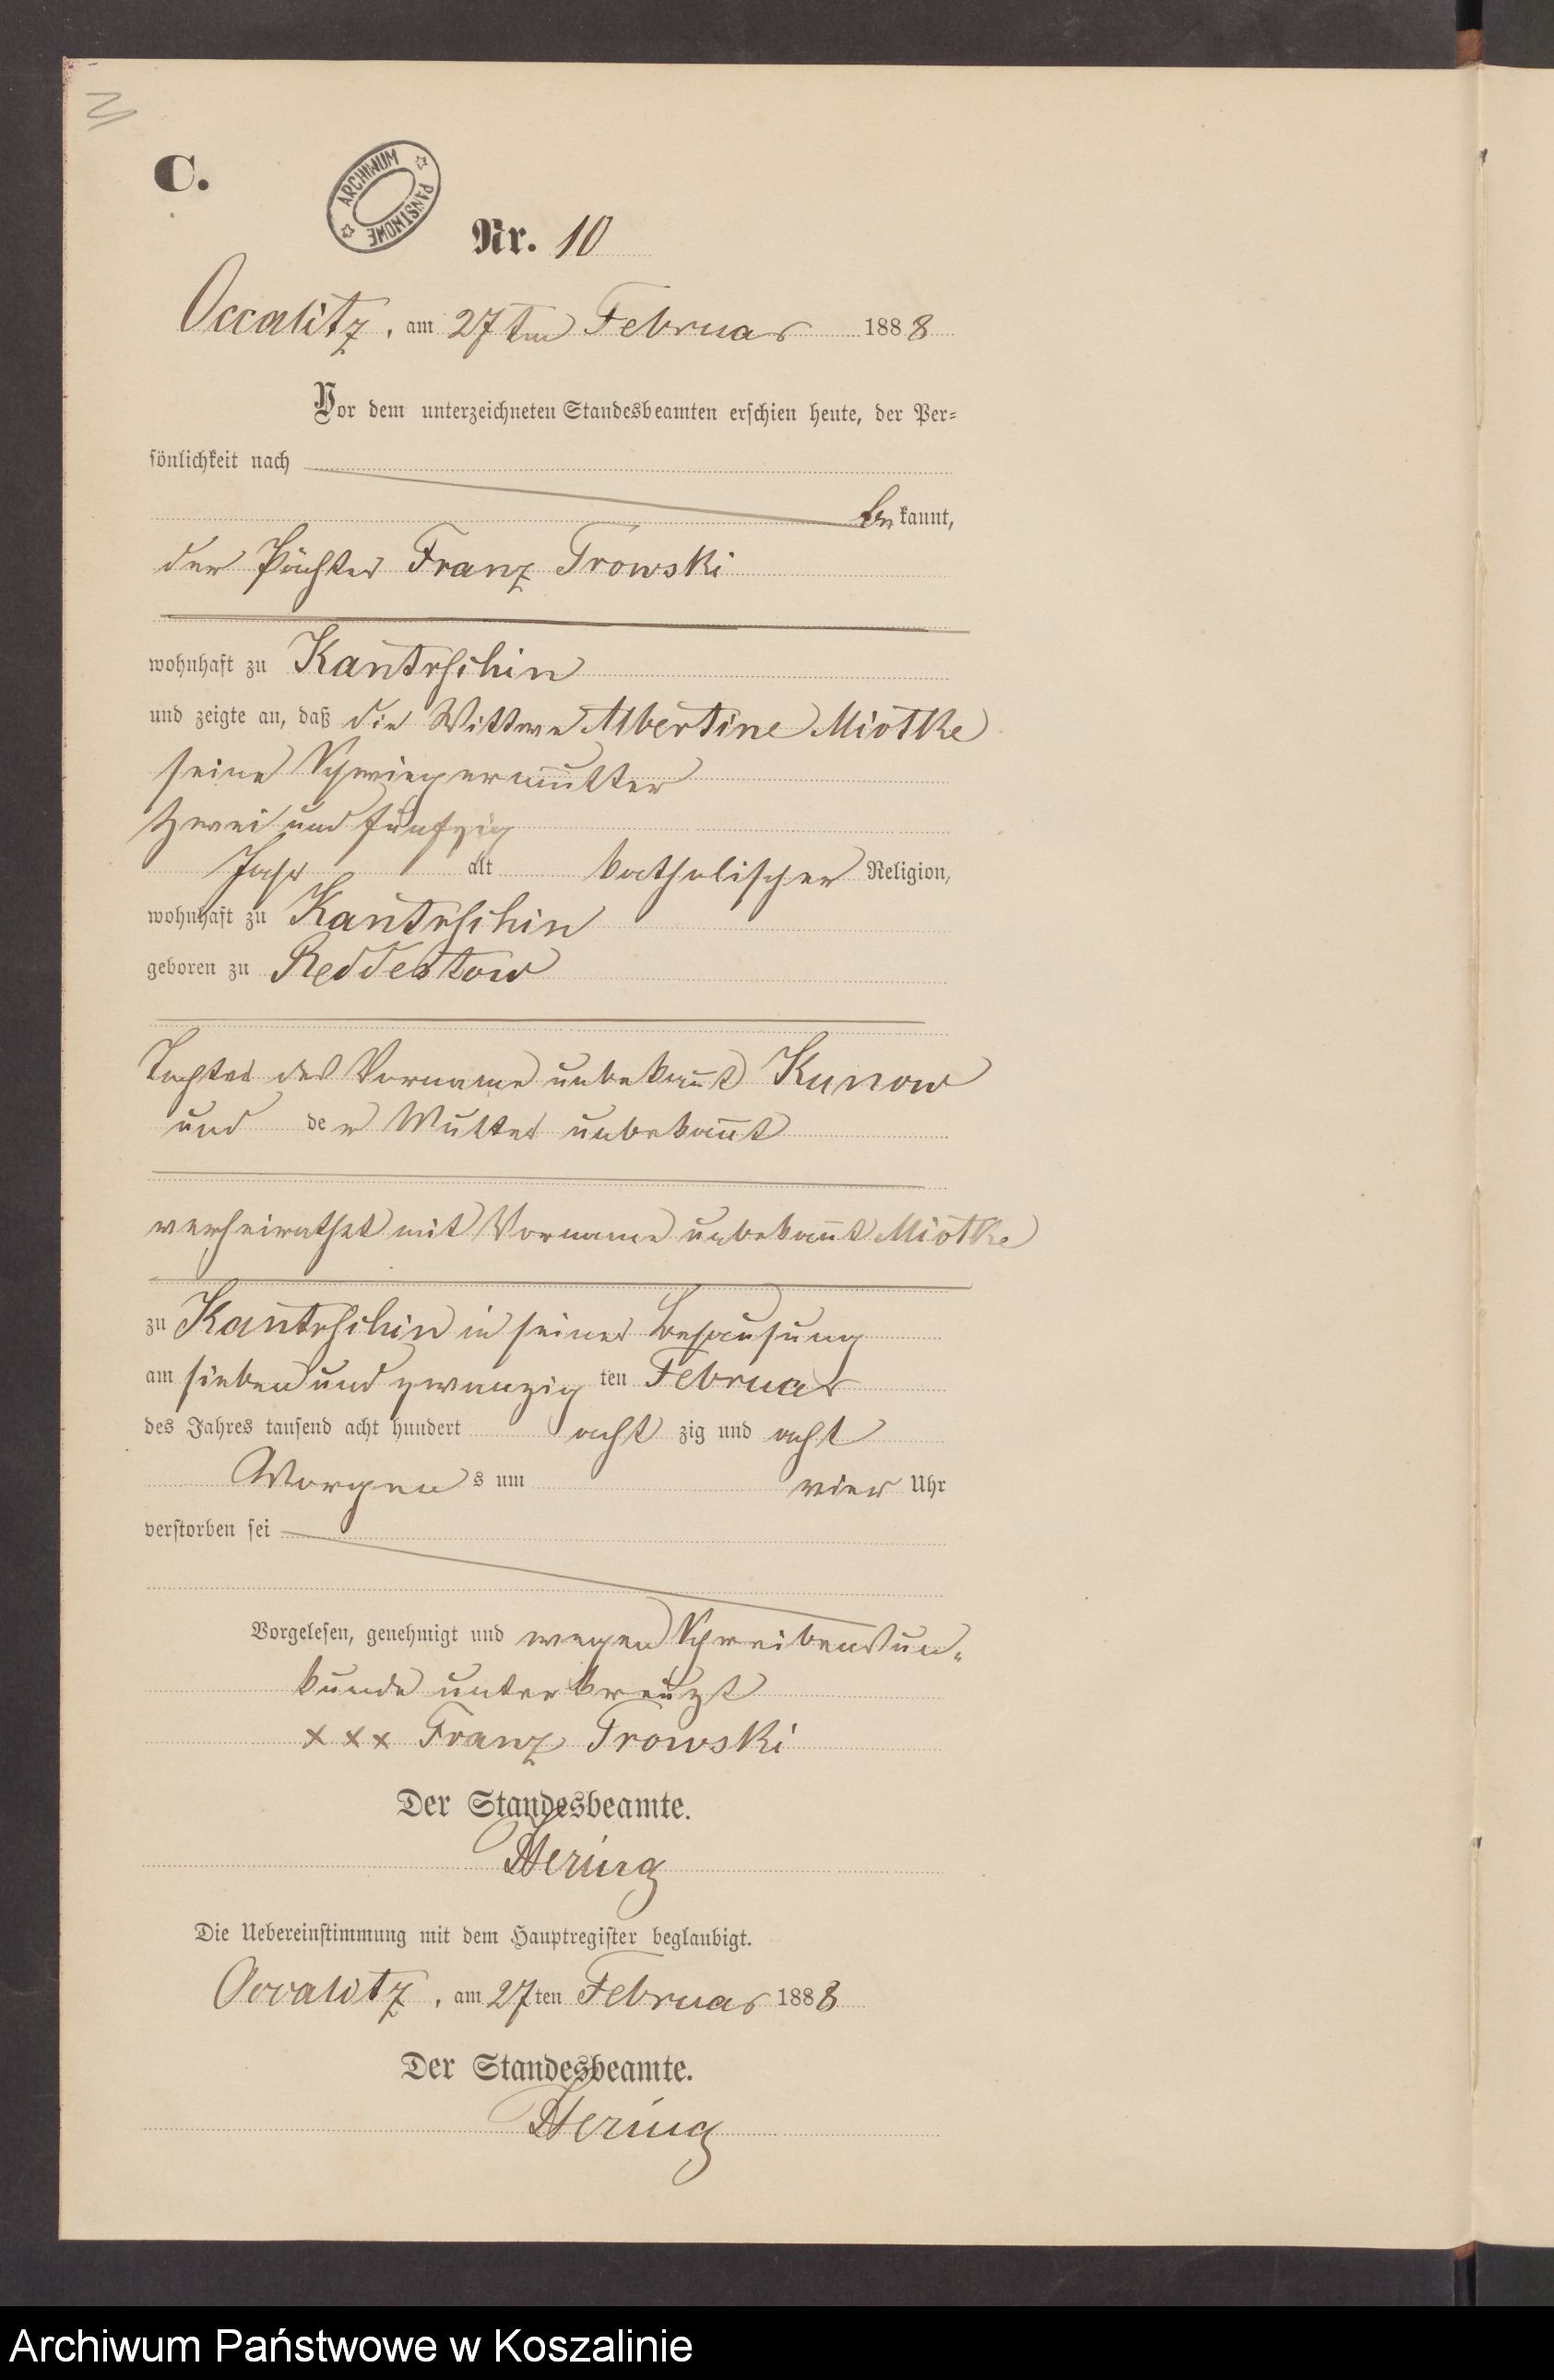 C.
ARCHIWUM PAŃSTWOWE
Nr. 10
Occalitz, am 27ten Februar 1888
Vor dem unterzeichneten Standesbeamten erschien heute, der Per-
sönlichkeit nach
bekannt,
der Pächter Franz Trowski
wohnhaft zu Kantrschin
und zeigte an, daß die Wittwe Albertine Miotke
seine Schwiegermutter
zwei und fünfzig
Jahr alt katholischer Religion,
wohnhaft zu Kantrschin
geboren zu Reddestow
Tochter des Vorname unbekannt Kunow
und der Mutter unbekannt
verheirathet mit Vorname unbekannt Miotke
zu Kantrschin in seiner Behausung
am sieben und zwanzig ten Februar
des Jahres tausend acht hundert acht zig und acht
Morgens um vier Uhr
verstorben sei
Vorgelesen, genehmigt und wegen Schreibensun-
kunde unterkreuzt
x x x Franz Trowski
Der Standesbeamte.
Hering
Die Uebereinstimmung mit dem Hauptregister beglaubigt.
Occalitz, am 27ten Februar 1888
Der Standesbeamte.
Hering
Archiwum Państwowe w Koszalinie